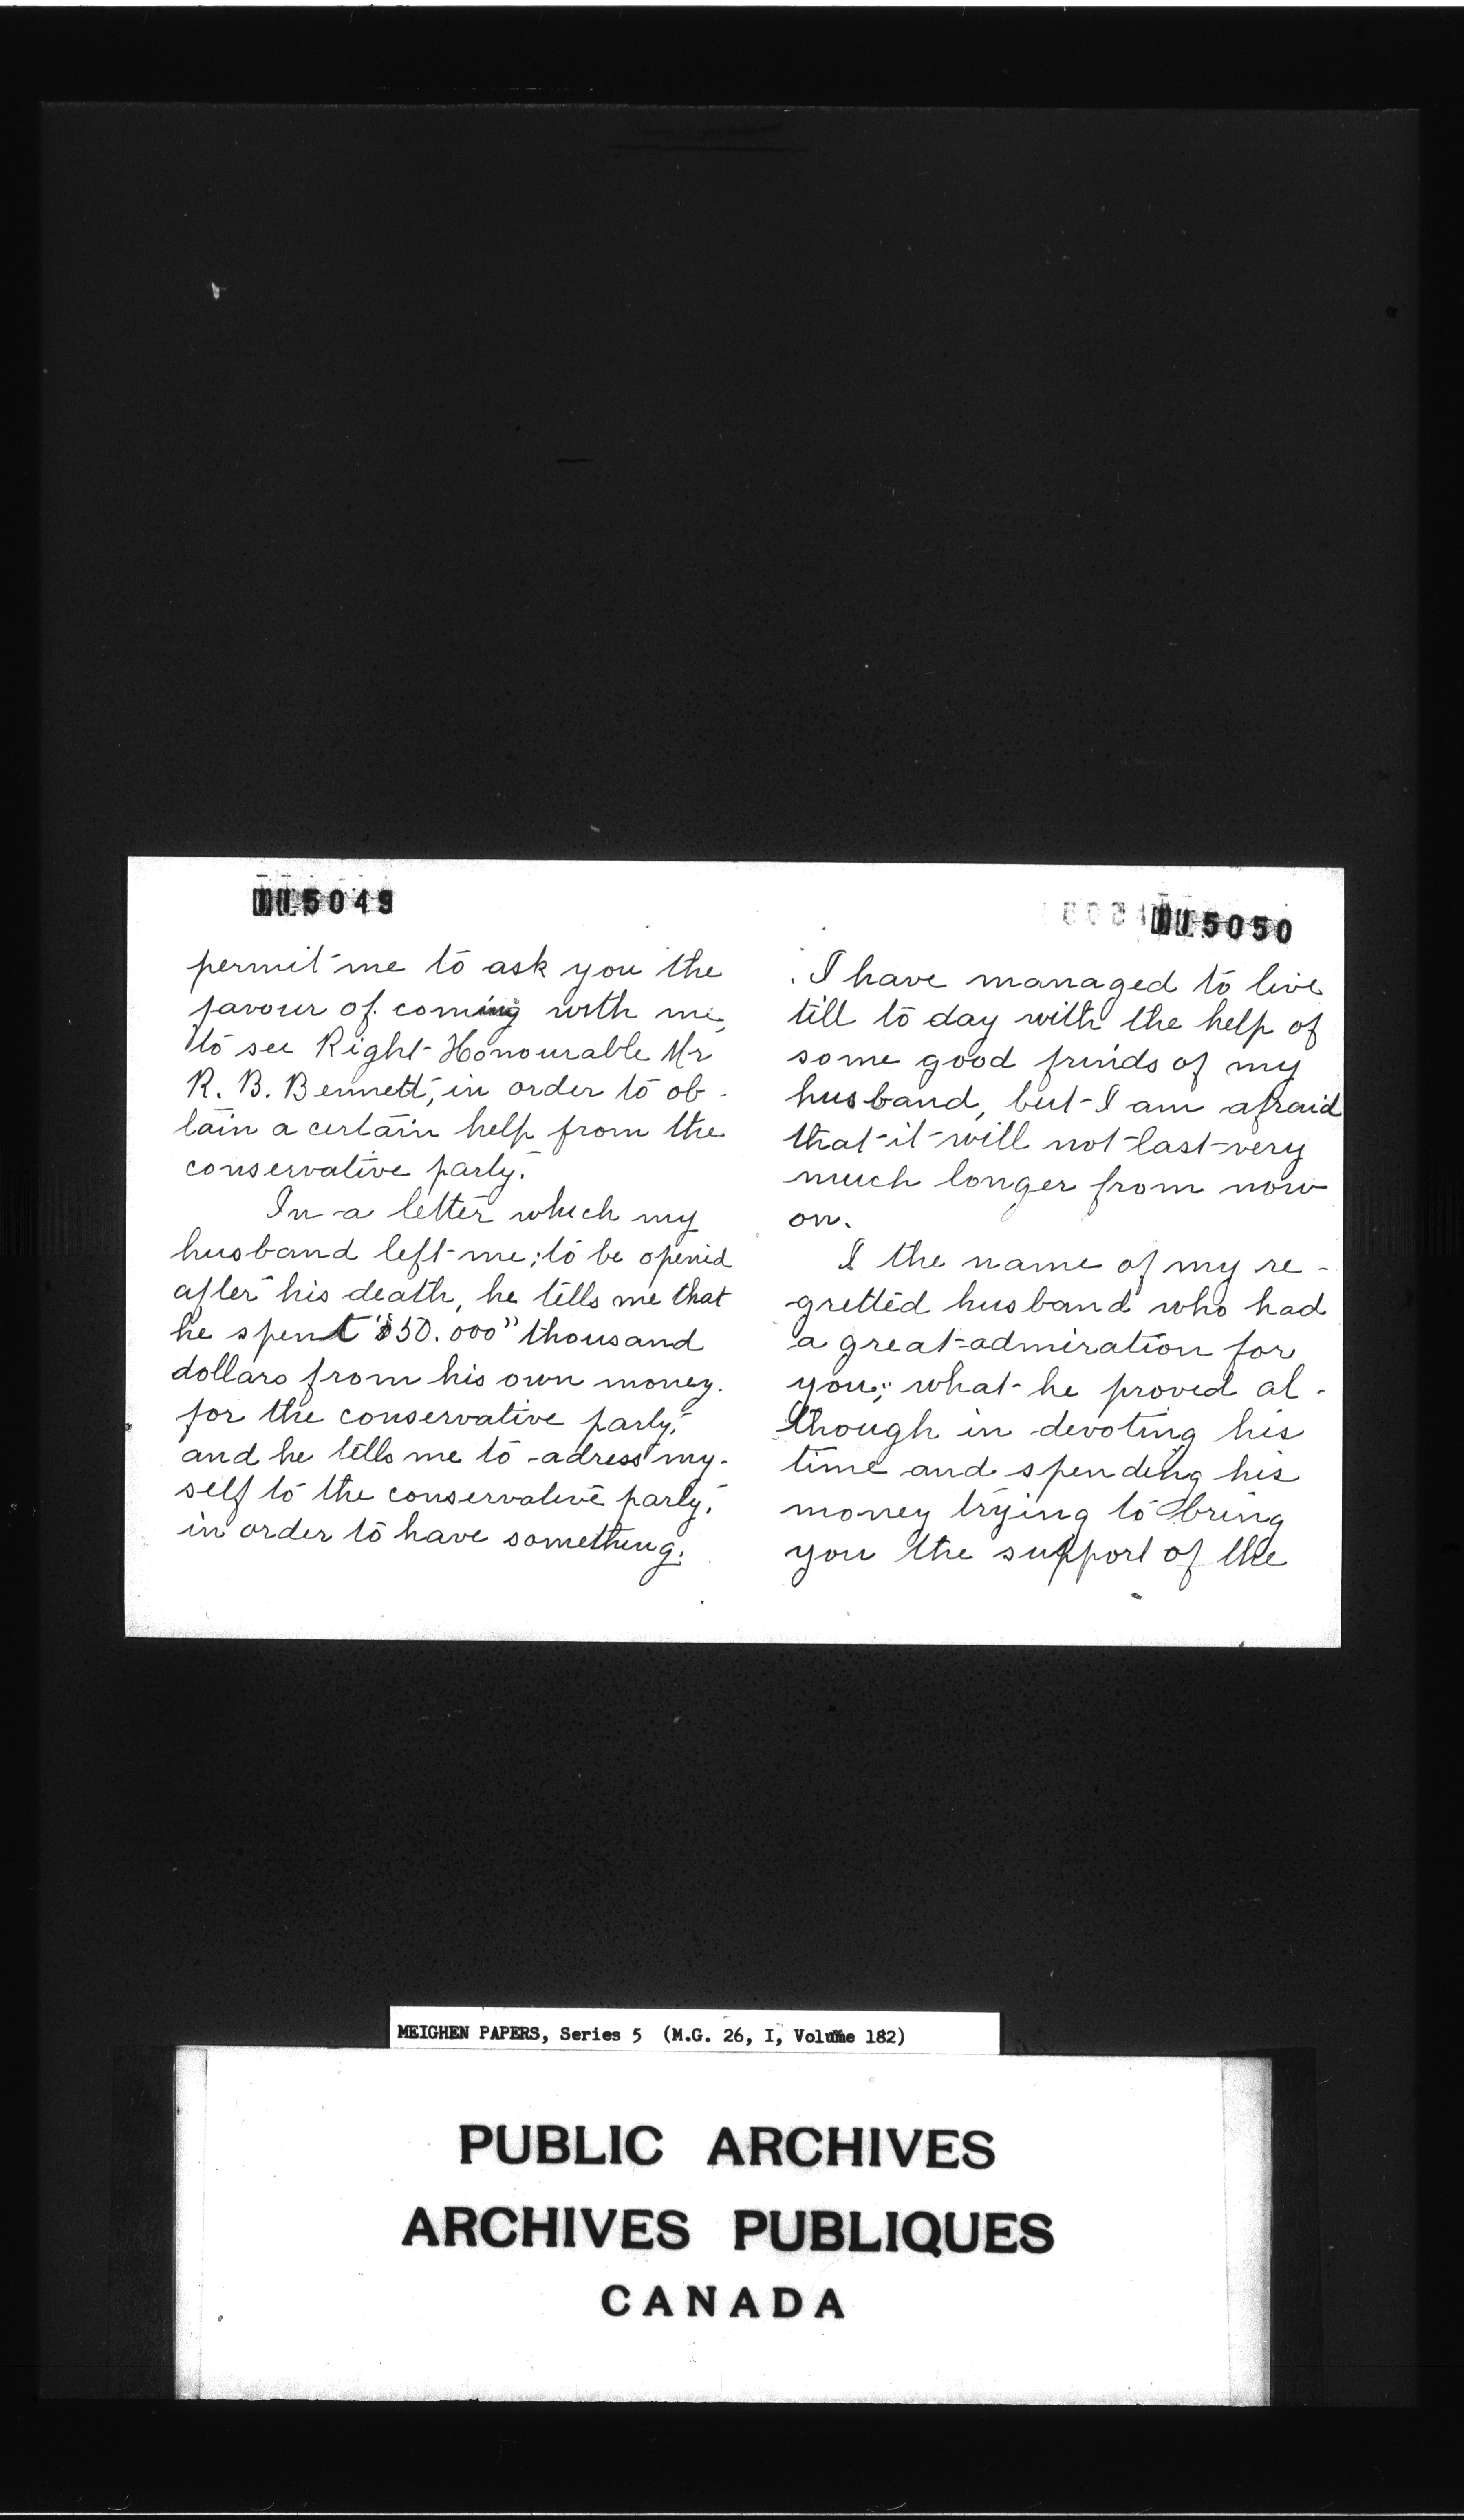 115049
permit me to ask you the
favour of coming with me,
to see Right-Honourable Mr
R. B. Bennett, in order to ob-
tain a certain help from the
conservative party.
In a letter which my
husband left me; to be opened
after his death, he tells me that
he spent "$50.000" thousand
dollars from his own money.
for the conservative party,
and he tells me to adress my-
self to the conservative party,
in order to have something.
115050
I have managed to live
till to day with the help of
some good frinds of my
husband, but I am afraid
that it will not last very
much longer from now
on.
I the name of my re-
gretted husband who had
a great admiration for
you; what he proved al-
though in devoting his
time and spending his
money trying to bring
you the support of the
MEIGHEN PAPERS, Series 5 (M.G. 26, I, Volume 182)
PUBLIC ARCHIVES
ARCHIVES PUBLIQUES
CANADA